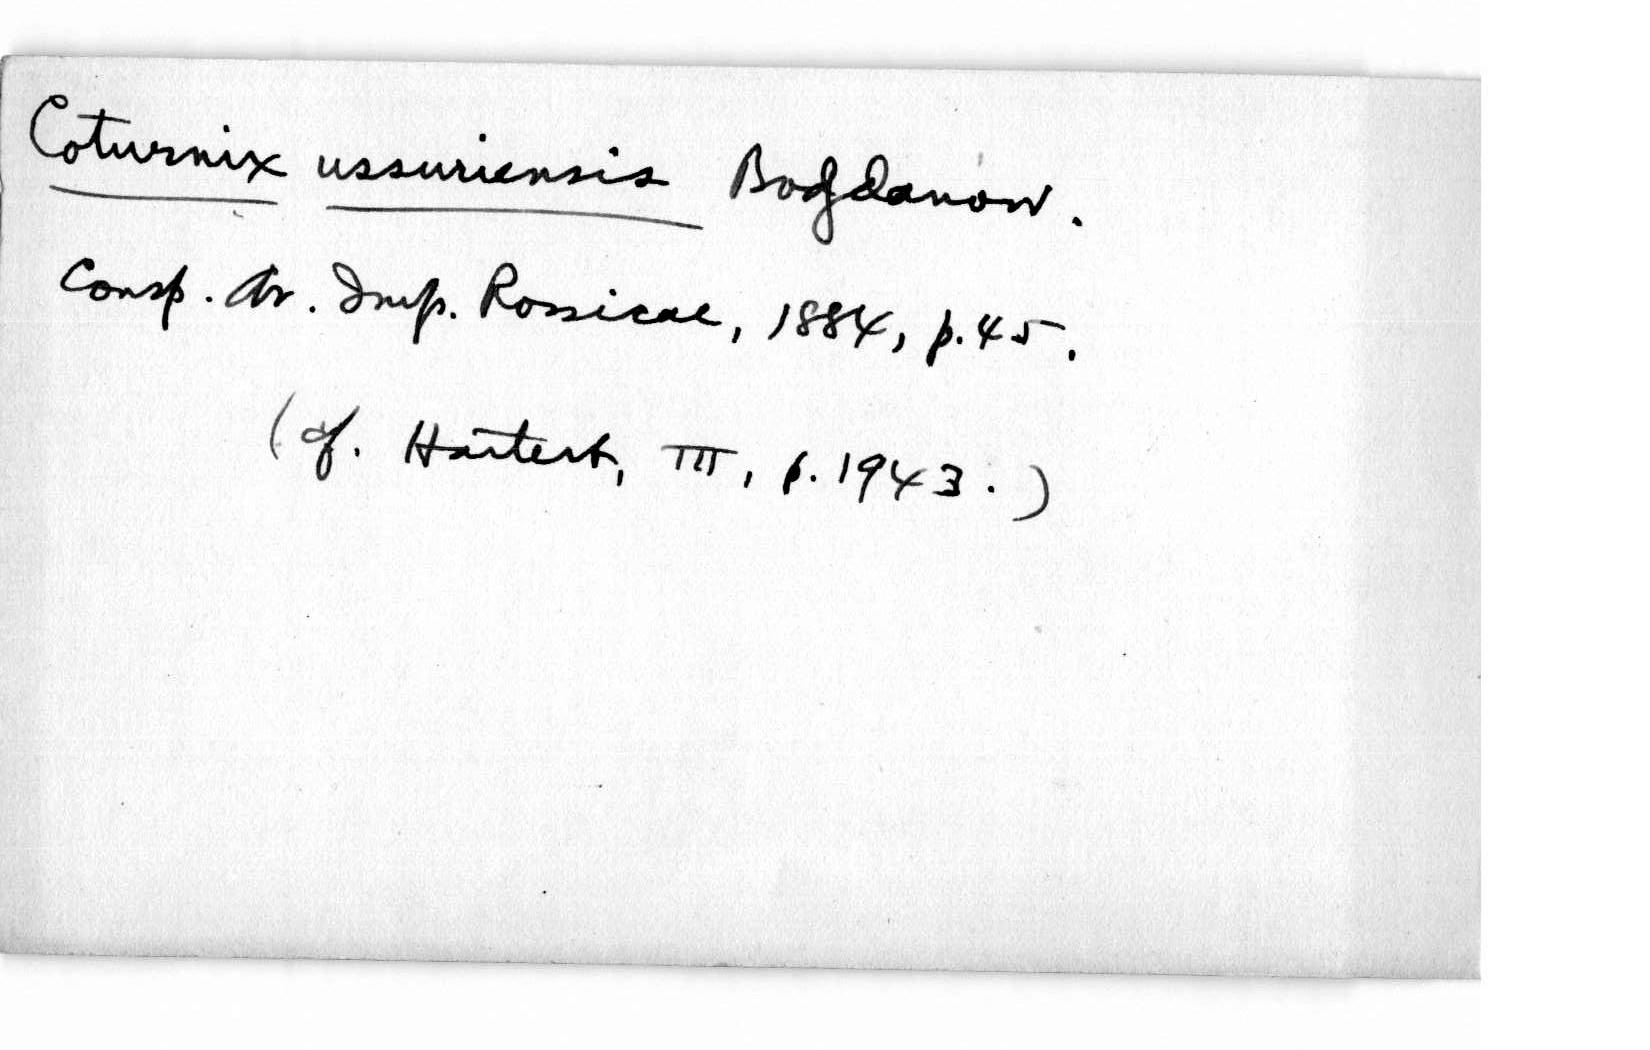 Coturnix ussuriensis Bogdanow.
Consp. Av. Imp. Rossicae, 1884, p. 45.
(cf. Hartert, III, p. 1943.)